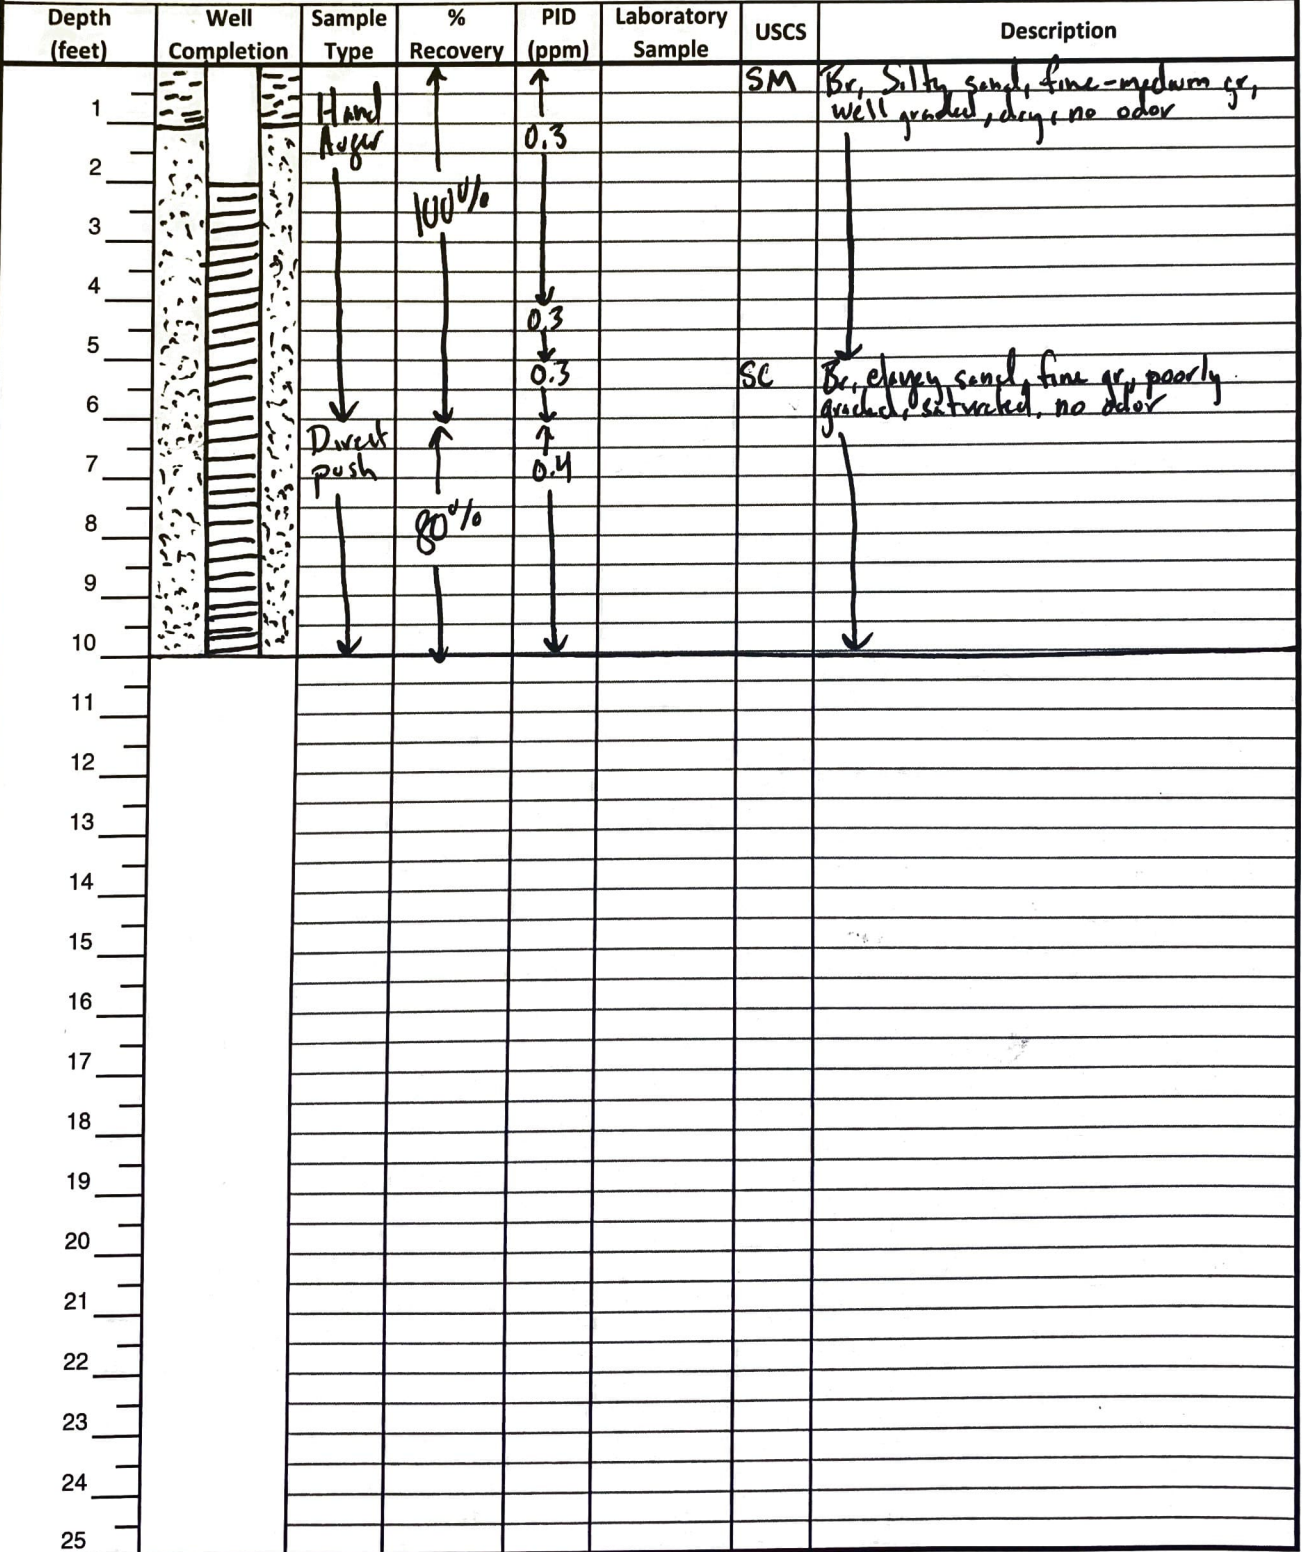 Depth (feet) Well Completion Sample Type % Recovery PID (ppm) Laboratory Sample USCS Description
SM Br, Silty sand, fine-medium gr,
1 Hand well graded, dry, no odor
Auger 0.3
2
100%
3
4
0.3
5
0.3 SC Br, clayey sand, fine gr, poorly
6 graded, saturated, no odor
Direct
7 push 0.4
8 80%
9
10
11
12
13
14
15
16
17
18
19
20
21
22
23
24
25